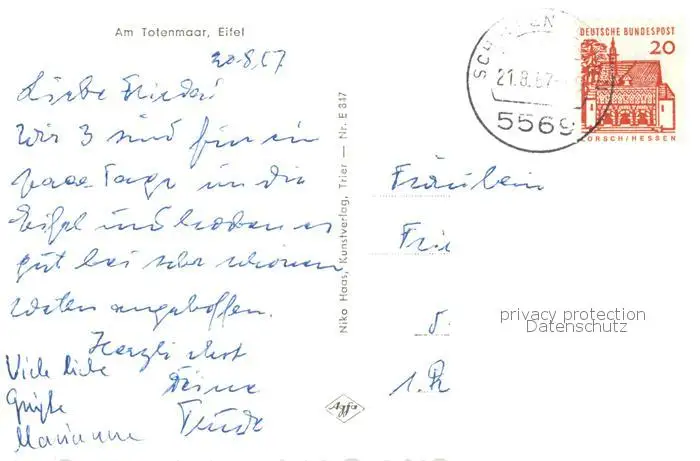 Am Totenmaar, Eifel
20.8.67
Liebe Frieda!
Wir 3 sind für ein
paar Tage in die
Eifel und haben es
gut bei sehr schönem
Wetter angetroffen.
Herzlichst
Deine
Trude
Viele liebe
Grüße
Marianne
Niko Haas, Kunstverlag, Trier — Nr. E 347
Agfa
SCH
21.8.67
5569
DEUTSCHE BUNDESPOST
20
LORSCH/HESSEN
Fräulein
Frie
1. R
privacy protection
Datenschutz